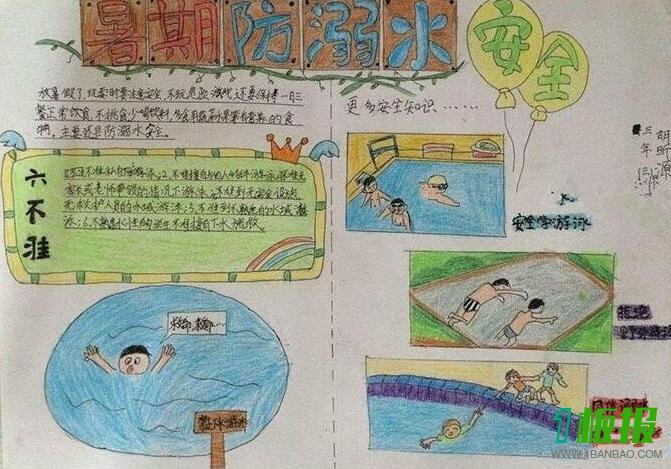 暑期防溺水
安全
放暑假了,玩耍时要注意安全,不玩危险游戏,还要保持一日三
餐正常饮食,不挑食少喝饮料,多食用蔬菜水果等有营养的食
物,主要还是防溺水安全。
六不准
1.不准私自下水游泳;2.不准擅自与他人结伴游泳;3.不准在无
家长或老师带领的情况下游泳;4.不准到无安全设施、
无救护人员的水域游泳;5.不准到不熟悉的水域游
泳;6.不熟悉水性的学生不准擅自下水施救。
救命 救命…
禁止游泳
更多安全知识……
三年
安全学游泳
拒绝
野外游泳
1板报
WWW.1BANBAO.COM